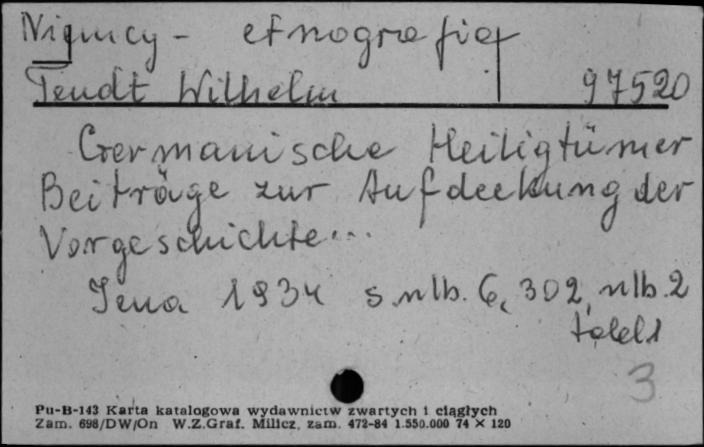 Niemcy - etnografia
Teudt Wilhelm 97520
Germanische Heiligtümer
Beiträge zur Aufdeckung der
Vorgeschichte...
Jena 1934 s. nlb. 6, 302, nlb. 2
tabl 1
3
Pu-B-143 Karta katalogowa wydawnictw zwartych i ciągłych
Zam. 698/DW/On W.Z.Graf. Milicz, zam. 472-84 1.550.000 74 × 120